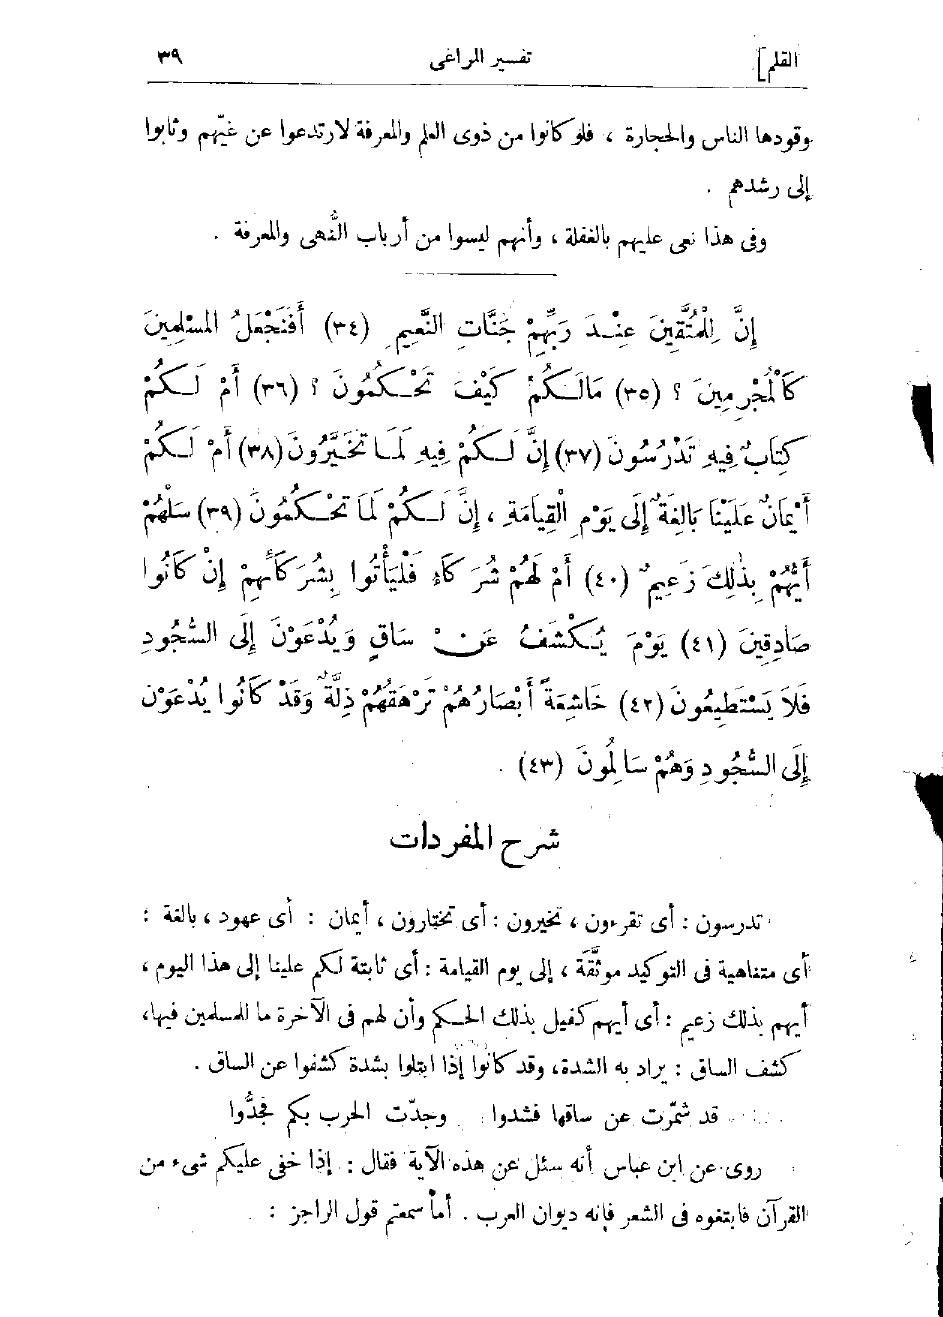 القلم] تفسير المراغى ٣٩
وقودها الناس والحجارة ، فلو كانوا من ذوى العلم والمعرفة لارتدعوا عن غيّهم وثابوا
إلى رشدهم .
وفى هذا نعى عليهم بالغفلة ، وأنهم ليسوا من أرباب النُّهى والمعرفة .
إِنَّ لِلْمُتَّقِينَ عِنْدَ رَبِّهِمْ جَنَّاتِ النَّعِيمِ (٣٤) أَفَنَجْعَلُ الْمُسْلِمِينَ
كَالْمُجْرِمِينَ ؟ (٣٥) مَالَكُمْ كَيْفَ تَحْكُمُونَ ؟ (٣٦) أَمْ لَكُمْ
كِتَابٌ فِيهِ تَدْرُسُونَ (٣٧) إِنَّ لَكُمْ فِيهِ لَمَا تَخَيَّرُونَ (٣٨) أَمْ لَكُمْ
أَيْمَانٌ عَلَيْنَا بَالِغَةٌ إِلَى يَوْمِ الْقِيَامَةِ ، إِنَّ لَكُمْ لَمَا تَحْكُمُونَ (٣٩) سَلْهُمْ
أَيُّهُمْ بِذَلِكَ زَعِيمٌ (٤٠) أَمْ لَهُمْ شُرَكَاءُ فَلْيَأْتُوا بِشُرَكَائِهِمْ إِنْ كَانُوا
صَادِقِينَ (٤١) يَوْمَ يُكْشَفُ عَنْ سَاقٍ وَيُدْعَوْنَ إِلَى السُّجُودِ
فَلَا يَسْتَطِيعُونَ (٤٢) خَاشِعَةً أَبْصَارُهُمْ تَرْهَقُهُمْ ذِلَّةٌ وَقَدْ كَانُوا يُدْعَوْنَ
إِلَى السُّجُودِ وَهُمْ سَالِمُونَ (٤٣) .
شرح المفردات
تدرسون : أى تقرءون ، تخيرون : أى تختارون ، أيمان : أى عهود ، بالغة :
أى متناهية فى التوكيد موثَّقَة ، إلى يوم القيامة : أى ثابتة لكم علينا إلى هذا اليوم ،
أيهم بذلك زعيم : أى أيهم كفيل بذلك الحكم وأن لهم فى الآخرة ما للمسلمين فيها،
كشف الساق : يراد به الشدة، وقد كانوا إذا ابتلوا بشدة كشفوا عن الساق .
قد شمّرت عن ساقها فشدوا وجدّت الحرب بكم فجدُّوا
روى عن ابن عباس أنه سئل عن هذه الآية فقال : إذا خفى عليكم شىء من
القرآن فابتغوه فى الشعر فإنه ديوان العرب . أما سمعتم قول الراجز :